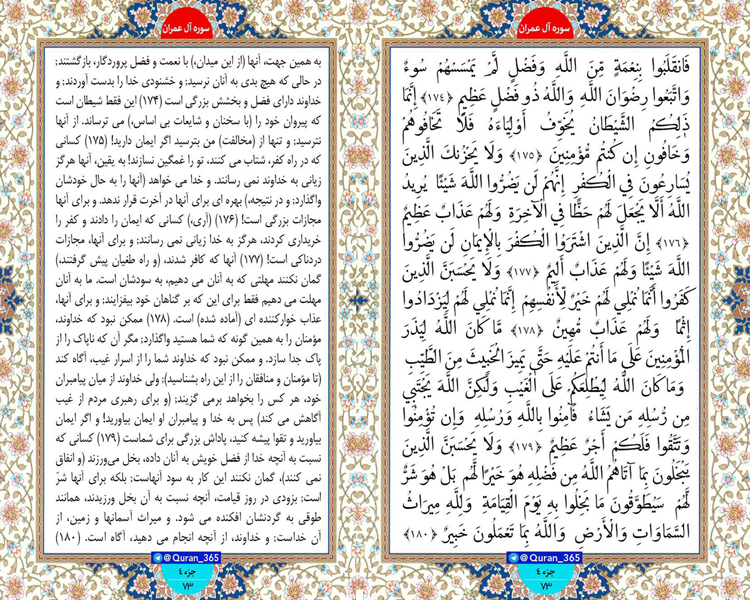 سوره آل عمران
فَانقَلَبُوا بِنِعْمَةٍ مِّنَ اللَّهِ وَفَضْلٍ لَّمْ يَمْسَسْهُمْ سُوءٌ
وَاتَّبَعُوا رِضْوَانَ اللَّهِ وَاللَّهُ ذُو فَضْلٍ عَظِيمٍ ﴿١٧٤﴾ إِنَّمَا
ذَلِكُمُ الشَّيْطَانُ يُخَوِّفُ أَوْلِيَاءَهُ فَلَا تَخَافُوهُمْ
وَخَافُونِ إِن كُنتُم مُّؤْمِنِينَ ﴿١٧٥﴾ وَلَا يَحْزُنكَ الَّذِينَ
يُسَارِعُونَ فِي الْكُفْرِ إِنَّهُمْ لَن يَضُرُّوا اللَّهَ شَيْئًا يُرِيدُ
اللَّهُ أَلَّا يَجْعَلَ لَهُمْ حَظًّا فِي الْآخِرَةِ وَلَهُمْ عَذَابٌ عَظِيمٌ
﴿١٧٦﴾ إِنَّ الَّذِينَ اشْتَرَوُا الْكُفْرَ بِالْإِيمَانِ لَن يَضُرُّوا
اللَّهَ شَيْئًا وَلَهُمْ عَذَابٌ أَلِيمٌ ﴿١٧٧﴾ وَلَا يَحْسَبَنَّ الَّذِينَ
كَفَرُوا أَنَّمَا نُمْلِي لَهُمْ خَيْرٌ لِّأَنفُسِهِمْ إِنَّمَا نُمْلِي لَهُمْ لِيَزْدَادُوا
إِثْمًا وَلَهُمْ عَذَابٌ مُّهِينٌ ﴿١٧٨﴾ مَّا كَانَ اللَّهُ لِيَذَرَ
الْمُؤْمِنِينَ عَلَى مَا أَنتُمْ عَلَيْهِ حَتَّى يَمِيزَ الْخَبِيثَ مِنَ الطَّيِّبِ
وَمَا كَانَ اللَّهُ لِيُطْلِعَكُمْ عَلَى الْغَيْبِ وَلَكِنَّ اللَّهَ يَجْتَبِي
مِن رُّسُلِهِ مَن يَشَاءُ فَآمِنُوا بِاللَّهِ وَرُسُلِهِ وَإِن تُؤْمِنُوا
وَتَتَّقُوا فَلَكُمْ أَجْرٌ عَظِيمٌ ﴿١٧٩﴾ وَلَا يَحْسَبَنَّ الَّذِينَ
يَبْخَلُونَ بِمَا آتَاهُمُ اللَّهُ مِن فَضْلِهِ هُوَ خَيْرًا لَّهُم بَلْ هُوَ شَرٌّ
لَّهُمْ سَيُطَوَّقُونَ مَا بَخِلُوا بِهِ يَوْمَ الْقِيَامَةِ وَلِلَّهِ مِيرَاثُ
السَّمَاوَاتِ وَالْأَرْضِ وَاللَّهُ بِمَا تَعْمَلُونَ خَبِيرٌ ﴿١٨٠﴾
@Quran_365
جزء ٤
٧٣
سوره آل عمران
به همین جهت، آنها (از این میدان،) با نعمت و فضل پروردگار، بازگشتند؛
در حالی که هیچ بدی به آنان نرسید؛ و خشنودی خدا را بدست آوردند؛ و
خداوند دارای فضل و بخشش بزرگی است (۱۷۴) این فقط شیطان است
که پیروان خود را (با سخنان و شایعات بی اساس،) می ترساند. از آنها
نترسید؛ و تنها از (مخالفت) من بترسید اگر ایمان دارید! (۱۷۵) کسانی
که در راه کفر، شتاب می کنند، تو را غمگین نسازند! به یقین، آنها هرگز
زیانی به خداوند نمی رسانند. و خدا می خواهد (آنها را به حال خودشان
واگذارد؛ و در نتیجه،) بهره ای برای آنها در آخرت قرار ندهد. و برای آنها
مجازات بزرگی است! (۱۷۶) (آری،) کسانی که ایمان را دادند و کفر را
خریداری کردند، هرگز به خدا زیانی نمی رسانند؛ و برای آنها، مجازات
دردناکی است! (۱۷۷) آنها که کافر شدند، (و راه طغیان پیش گرفتند،)
گمان نکنند مهلتی که به آنان می دهیم، به سودشان است. ما به آنان
مهلت می دهیم فقط برای این که بر گناهان خود بیفزایند؛ و برای آنها،
عذاب خوارکننده ای (آماده شده) است. (۱۷۸) ممکن نبود که خداوند،
مؤمنان را به همین گونه که شما هستید واگذارد؛ مگر آن که ناپاک را از
پاک جدا سازد. و ممکن نبود که خداوند شما را از اسرار غیب، آگاه کند
(تا مؤمنان و منافقان را از این راه بشناسید)؛ ولی خداوند از میان پیامبران
خود، هر کس را بخواهد برمی گزیند؛ (و برای رهبری مردم از غیب
آگاهش می کند) پس به خدا و پیامبران او ایمان بیاورید! و اگر ایمان
بیاورید و تقوا پیشه کنید، پاداش بزرگی برای شماست (۱۷۹) کسانی که
نسبت به آنچه خدا از فضل خویش به آنان داده، بخل می‌ورزند (و انفاق
نمی کنند)، گمان نکنند این کار به سود آنهاست؛ بلکه برای آنها شرّ
است؛ بزودی در روز قیامت، آنچه نسبت به آن بخل ورزیدند، همانند
طوقی به گردنشان افکنده می شود. و میراث آسمانها و زمین، از
آن خداست؛ و خداوند، از آنچه انجام می دهید، آگاه است. (۱۸۰)
@Quran_365
جزء ٤
٧٣